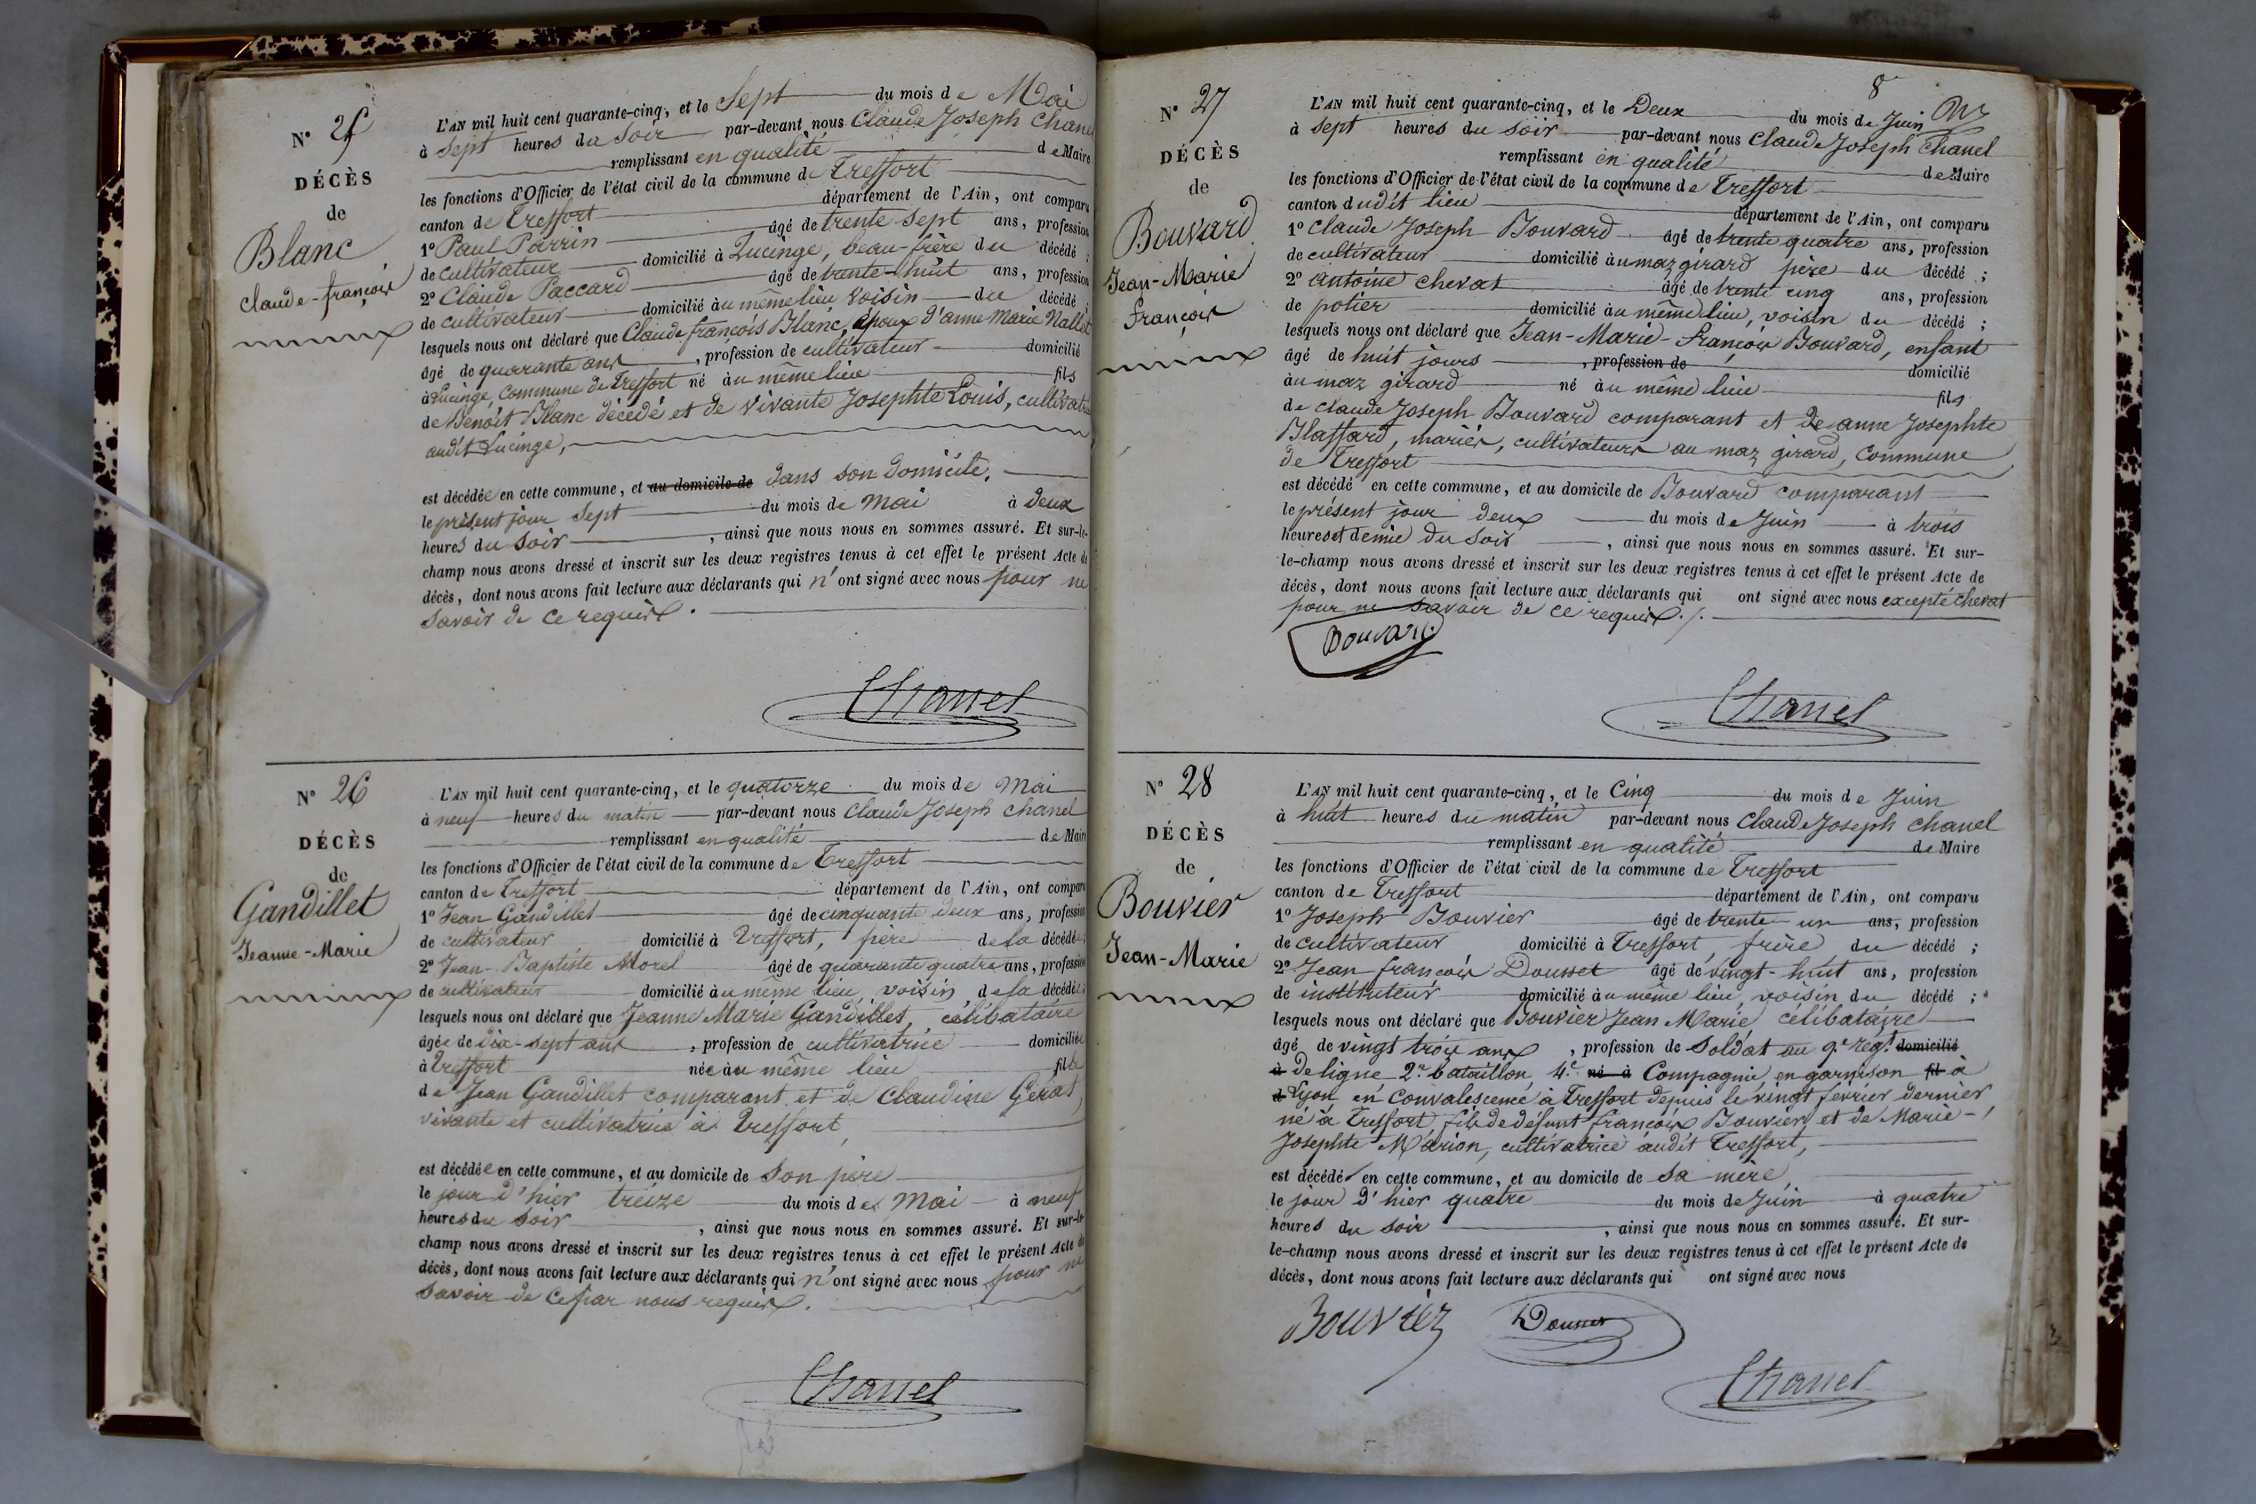 N° 25
DÉCÈS
de
Blanc
Claude-françois
L'AN mil huit cent quarante-cinq, et le Sept du mois de Mai
à Sept heures du Soir par-devant nous Claude Joseph Chanel
remplissant en qualité de Maire
les fonctions d'Officier de l'état civil de la commune de Treffort
canton de Treffort département de l'Ain, ont comparu
1° Paul Perrin âgé de trente-Sept ans, profession
de cultivateur domicilié à Lucinge, beau-frère du décédé ;
2° Claude Paccard âgé de trente-huit ans, profession
de cultivateur domicilié au même lieu voisin du décédé ;
lesquels nous ont déclaré que Claude françois Blanc, époux d'anne Marie Nallet
âgé de quarante ans, profession de cultivateur domicilié
à Lucinge, commune de Treffort né au même lieu fils
de Benoît Blanc décédé et de vivante Josephte Louis, cultivatrice
audit Lucinge,
est décédé en cette commune, et au domicile de dans son domicile,
le présent jour Sept du mois de Mai à deux
heures du Soir, ainsi que nous nous en sommes assuré. Et sur-le-
champ nous avons dressé et inscrit sur les deux registres tenus à cet effet le présent Acte de
décès, dont nous avons fait lecture aux déclarants qui n'ont signé avec nous pour ne
Savoir de ce requis.
Chanel
N° 26
DÉCÈS
de
Gandillet
Jeanne-Marie
L'AN mil huit cent quarante-cinq, et le quatorze du mois de Mai
à neuf heures du matin par-devant nous Claude Joseph Chanel
remplissant en qualité de Maire
les fonctions d'Officier de l'état civil de la commune de Treffort
canton de Treffort département de l'Ain, ont comparu
1° Jean Gandillet âgé de cinquante deux ans, profession
de cultivateur domicilié à Treffort, père de la décédée
2° Jean-Baptiste Morel âgé de quarante quatre ans, profession
de cultivateur domicilié au même lieu, voisin de la décédée
lesquels nous ont déclaré que Jeanne Marie Gandillet, célibataire
âgée de dix-sept ans, profession de cultivatrice domiciliée
à Treffort née au même lieu fille
de Jean Gandillet comparant et de Claudine Gerat,
vivante et cultivatrice à Treffort,
est décédée en cette commune, et au domicile de Son père
le jour d'hier treize du mois de Mai à neuf
heures du Soir, ainsi que nous nous en sommes assuré. Et sur-le-
champ nous avons dressé et inscrit sur les deux registres tenus à cet effet le présent Acte de
décès, dont nous avons fait lecture aux déclarants qui n'ont signé avec nous pour ne
Savoir de ce par nous requis.
Chanel
8
N° 27
DÉCÈS
de
Bouvard
Jean-Marie
françois
L'AN mil huit cent quarante-cinq, et le Deux du mois de Juin
à sept heures du soir par-devant nous Claude Joseph Chanel
remplissant en qualité de Maire
les fonctions d'Officier de l'état civil de la commune de Treffort
canton dudit lieu département de l'Ain, ont comparu
1° Claude Joseph Bouvard âgé de trente quatre ans, profession
de cultivateur domicilié au maz girard père du décédé ;
2° antoine chevat âgé de trente cinq ans, profession
de potier domicilié au même lieu, voisin du décédé ;
lesquels nous ont déclaré que Jean-Marie-françois Bouvard, enfant
âgé de huit jours, profession de domicilié
au maz girard né au même lieu fils
de Claude Joseph Bouvard comparant et de anne Josephte
Blaffard, mariés, cultivateurs au maz girard, commune
de Treffort
est décédé en cette commune, et au domicile de Bouvard comparant
le présent jour deux du mois de Juin à trois
heures et demie du soir, ainsi que nous nous en sommes assuré. Et sur-
le-champ nous avons dressé et inscrit sur les deux registres tenus à cet effet le présent Acte de
décès, dont nous avons fait lecture aux déclarants qui ont signé avec nous excepté chevat
pour ne savoir de ce requis.
Bouvard
Chanel
N° 28
DÉCÈS
de
Bouvier
Jean-Marie
L'AN mil huit cent quarante-cinq, et le Cinq du mois de Juin
à huit heures du matin par-devant nous Claude Joseph Chanel
remplissant en qualité de Maire
les fonctions d'Officier de l'état civil de la commune de Treffort
canton de Treffort département de l'Ain, ont comparu
1° Joseph Bouvier âgé de trente un ans, profession
de cultivateur domicilié à Treffort, frère du décédé ;
2° Jean françois Dousset âgé de vingt-huit ans, profession
de instituteur domicilié au même lieu, voisin du décédé ;
lesquels nous ont déclaré que Bouvier Jean Marie, célibataire
âgé de vingt trois ans, profession de Soldat au 9e régt domicilié
à De ligne 2e bataillon, 4e né à Compagnie, en garnison fil à
d Lyon, en convalescence à Treffort depuis le vingt février dernier
né à Treffort, fils de défunt françois Bouvier et de Marie-
Josephte Marion, cultivatrice audit Treffort,
est décédé en cette commune, et au domicile de Sa mère,
le jour d'hier quatre du mois de Juin à quatre
heures du soir, ainsi que nous nous en sommes assuré. Et sur-
le-champ nous avons dressé et inscrit sur les deux registres tenus à cet effet le présent Acte de
décès, dont nous avons fait lecture aux déclarants qui ont signé avec nous
Bouvier Dousset
Chanel